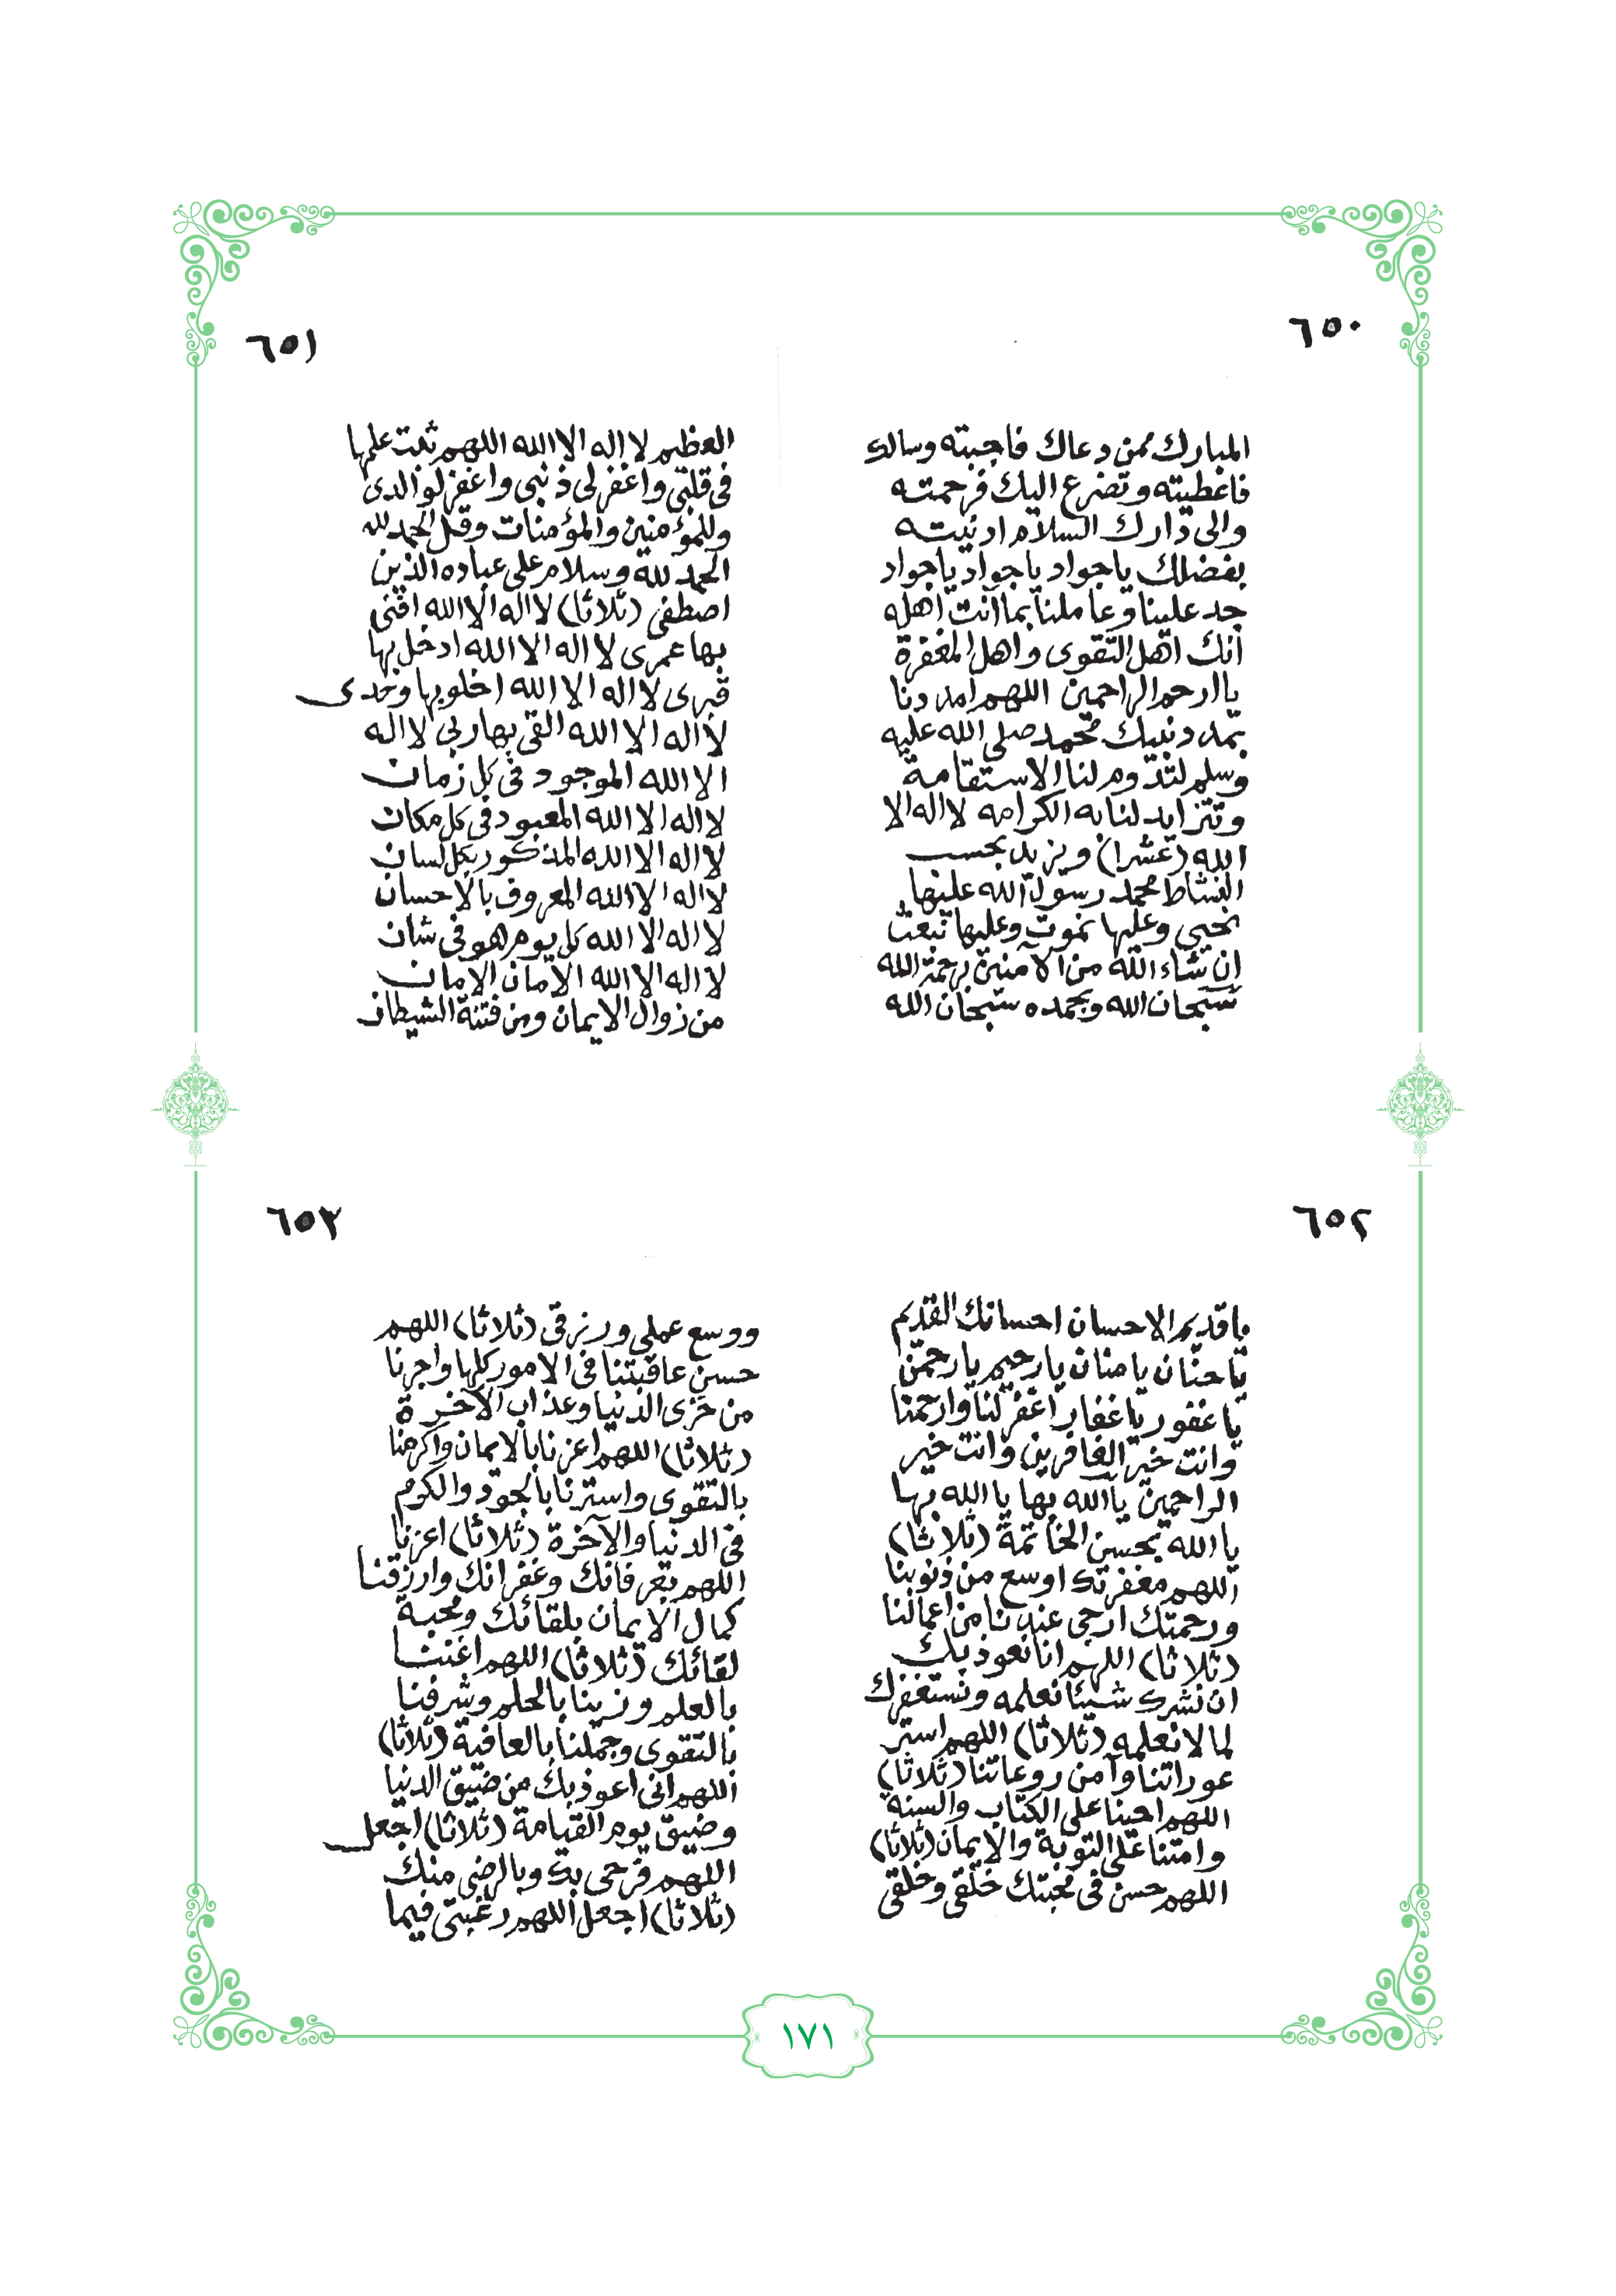 ٦٥٠
المبارك ممن دعاك فاجبته وسالك
فاعطيته وتضرع اليك فرحمته
والى دارك السلام ادنيته
بفضلك ياجواد ياجواد ياجواد
جد علينا وعاملنا بما انت اهله
انك اهل التقوى واهل المغفرة
ياارحم الراحمين اللهم امددنا
بمدد نبيك محمد صلى الله عليه
وسلم لتدوم لنا الاستقامة
وتتزايد لنا به الكرامه لااله الا
الله (عشرا) ويزيد بحسب
النشاط محمد رسول الله عليها
نحيي وعليها نموت وعليها نبعث
إن شاء الله من الآمنين برحمة الله
سبحان الله وبحمده سبحان الله
٦٥١
العظيم لااله الاالله اللهم ثبت علمها
فى قلبى واغفرلى ذنبى واغفرلوالدى
وللمؤمنين والمؤمنات وقل الحمدلله
الحمد لله وسلام على عباده الذين
اصطفى (ثلاثا) لااله الاالله افنى
بها عمرى لااله الاالله ادخل بها
قبرى لااله الاالله اخلوبها وحدى
لااله الاالله القى بها ربى لااله
الاالله الموجود فى كل زمان
لااله الاالله المعبود فى كل مكان
لااله الاالله المذكور بكل لسان
لااله الاالله المعروف بالإحسان
لااله الاالله كل يوم هو فى شان
لااله الاالله الأمان الامان
من زوال الايمان ومن فتنة الشيطان
٦٥٢
ياقديم الاحسان احسانك القديم
ياحنان يامنان يارحيم يارحمن
ياغفور ياغفار اغفرلنا وارحمنا
وانت خير الغافرين وانت خير
الراحمين ياالله بها ياالله بها
ياالله بحسن الخاتمة (ثلاثا)
اللهم مغفرتك اوسع من ذنوبنا
ورحمتك ارجى عندنا من اعمالنا
(ثلاثا) اللهم انا نعوذ بك
ان نشرك شيئا نعلمه ونستغفرك
لما لا نعلمه (ثلاثا) اللهم استر
عوراتنا وآمن روعاتنا (ثلاثا)
اللهم احينا على الكتاب والسنه
وامتنا على التوبة والايمان (ثلاثا)
اللهم حسن فى محبتك خلقى وخلقى
٦٥٣
ووسع عملى ورزقى (ثلاثا) اللهم
حسن عاقبتنا فى الامور كلها واجرنا
من خزى الدنيا وعذاب الآخرة
(ثلاثا) اللهم اعزنا بالايمان واكرمنا
بالتقوى واسترنا بالجود والكرم
فى الدنيا والآخرة (ثلاثا) اعزنا
اللهم بعرفانك وغفرانك وارزقنا
كمال الايمان بلقائك ومحبة
لقائك (ثلاثا) اللهم اغننا
بالعلم وزينا بالحلم وشرفنا
بالتقوى وجملنا بالعافية (ثلاثا)
اللهم انى اعوذ بك من ضيق الدنيا
وضيق يوم القيامة (ثلاثا) اجعل
اللهم فرحى بك وبالرضى منك
(ثلاثا) اجعل اللهم رغبتى فيما
١٧١